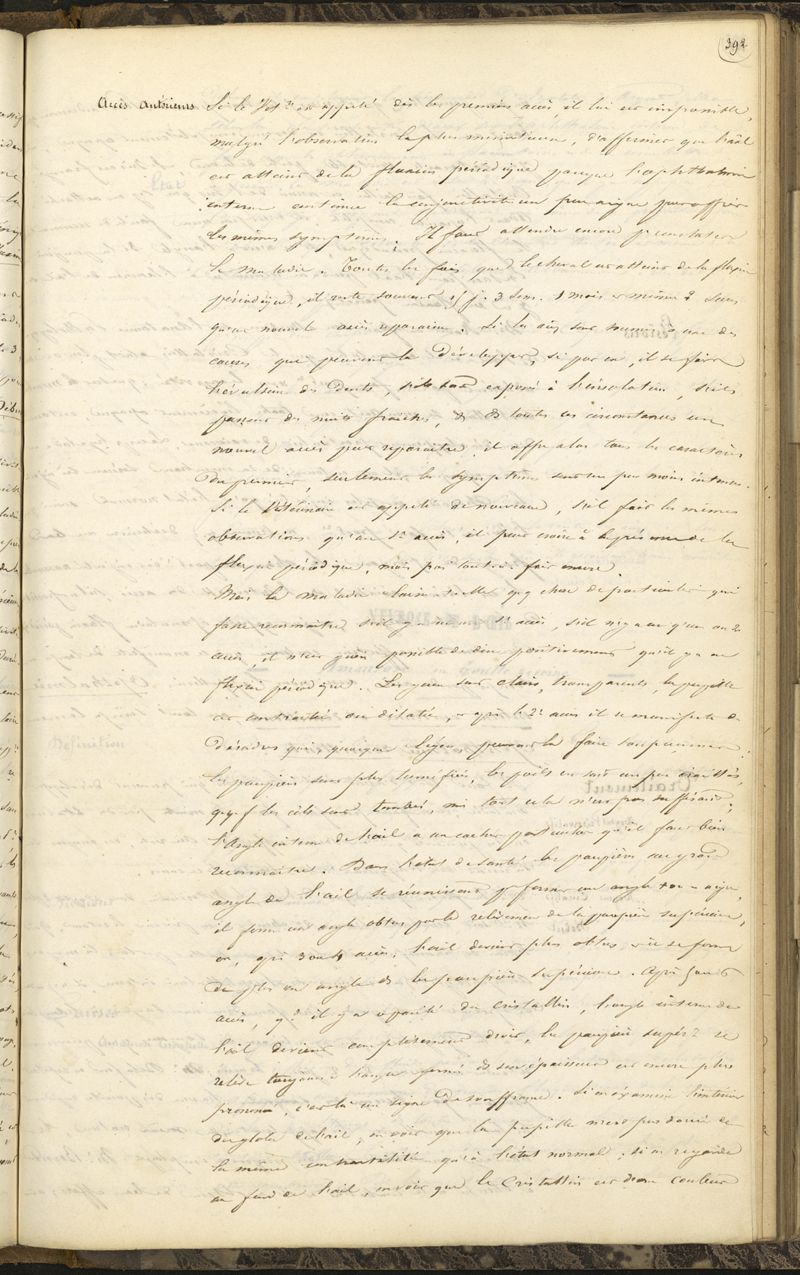 392
Accès antérieurs Si le Vétre est appelé dès les premiers accès, il lui est impossible,
malgré l'observation la plus minutieuse, d'affirmer que l'œil
est atteint de la fluxion périodique parceque l'ophthalmie
interne comme la conjonctivite un peu aigue peut offrir
les mêmes symptomes. Il faut attendre encore pr constater
la maladie. Toutes les fois que le cheval est atteint de la fluxion
périodique, il reste souvent 15 j. 3 sem. 1 mois et même 2 sans
qu'un nouvel accès reparaisse. Si les accès sont soumis à une des
causes que peuvent la développer, si par ex, il se fait
l'évulsion des dents, exposé à l'insolation, s'ils
passent des nuits fraiches, & ds toutes ces circonstances un
nouvel accès peut reparaitre, il offre alors tous les caractères
du premier, seulement les symptômes sont un peu moins intenses.
Si le Vétérinaire est appelé de nouveau, s'il fait les mêmes
observations qu'au 1er accès, il peut croire à la présence de la
fluxion périodique, mais pas tout à fait encore.
Mais la maladie laisse-t-elle qq chose de particulier qui
fasse reconnaitre s'il y a eu un 1er accès, s'il n'y a eu qu'un ou 2
accès, il n'est guère possible de dire positivement qu'il y a eu
fluxion périodique. Les yeux sont clairs, transparents, la pupille
est contractée ou dilatée, après le 2e accès il se manifeste des
désordres qui, quoique légers, peuvent la faire soupçonner.
les paupières sont plus tuméfiées, les poils en sont un peu
qq f. les cils sont tombés, mais tout cela n'est pas suffisant;
l'angle interne de l'œil a un cachet particulier qu'il faut bien
reconnaitre. Dans l'état de santé les paupières au grand
angle de l'œil se réunissent pr former un angle aigu,
il forme un angle obtus par le relèvement de la paupière supérieure,
ou, après 3 ou 4 accès, l'œil devient plus obtus, et il se forme
de plus un angle ds les paupières supérieure. Après 5 ou 6
accès, qd il y a opacité du cristallin, l'angle interne de
l'œil devient complètement droit, la paupière supére se
relève toujours, l'angle formé ds son épaisseur est encore plus
prononcé, c'est là un signe de souffrance. Si on examine l'intérieur
du globe de l'œil, on voit que la pupille n'est pas douée de
la même contractilité qu'à l'état normal; si on regarde
au fond de l'œil, on voit que le cristallin est d'une couleur